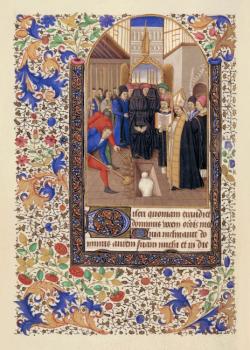 Dilexi quoniam exaudiet
dominus vocem orõis me
Quia inclinavit do
minus aurem suam michi et in die